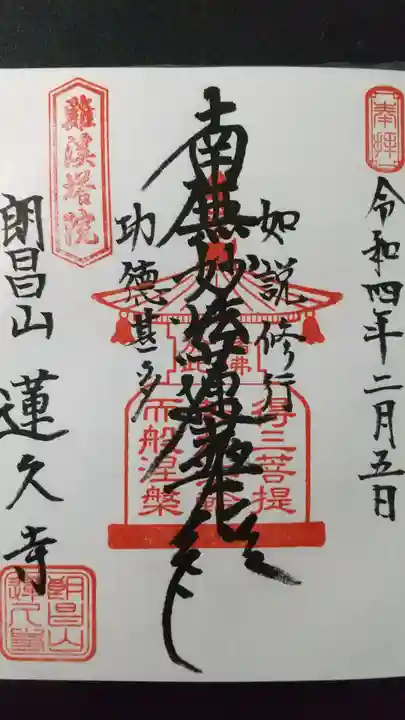 奉拝
令和四年二月五日
如説修行
南無妙法蓮華経
功徳甚多
得三菩提
而般涅槃
塔院
朗昌山 蓮久寺
朗昌山